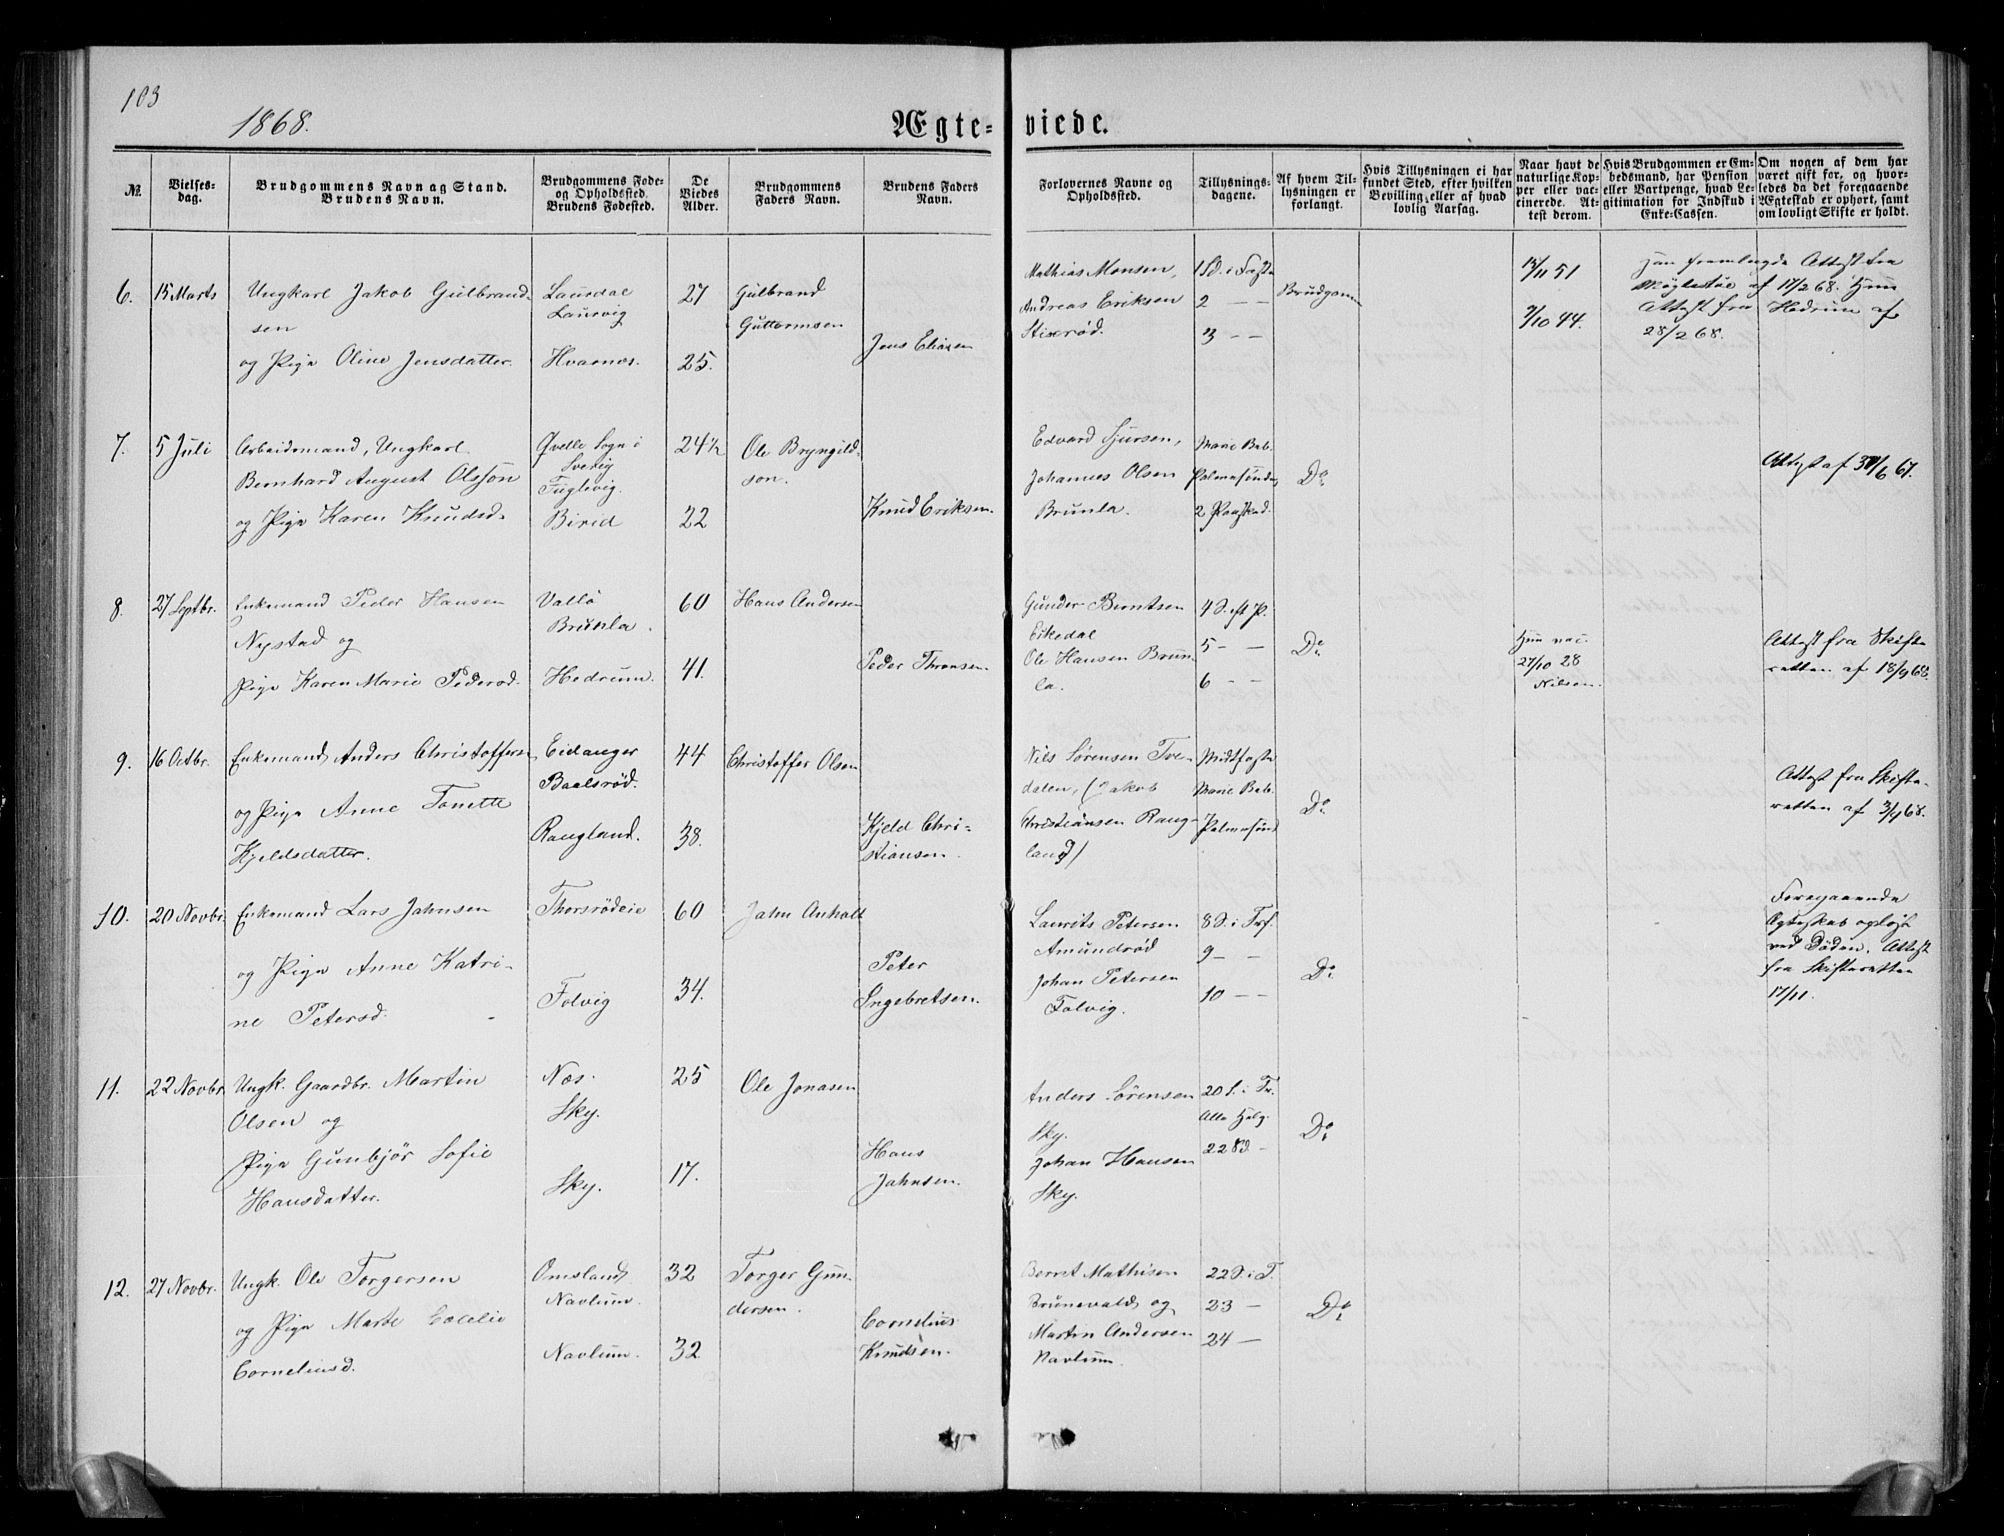 103
1868.
Ægte-viede.
№.
Vielses-
dag.
Brudgommens Navn ag Stand.
Brudens Navn.
Brudgommens Føde-
og Opholdsted.
Brudens Fødested.
De
Viedes
Alder.
Brudgommens
Faders Navn.
Brudens Faders
Navn.
Forlovernes Navne og
Opholdsted.
Tillysnings-
dagene.
Af hvem Til-
lysningen er
forlangt.
Hvis Tillysningen ei har
fundet Sted, efter hvilken
Bevilling, eller af hvad
lovlig Aarsag.
Naar havt de
naturlige Kop-
per eller vac-
cinerede. At-
test derom.
Hvis Brudgommen er Em-
bedsmand, har Pension
eller Vartpenge, hvad Le-
gitimation for Indskud i
Enke-Cassen.
Om nogen af dem har
været gift før, og hvor-
ledes da det foregaaende
Ægteskab er ophørt, samt
om lovligt Skifte er holdt.
6.
15 Marts
Ungkarl Jakob Gulbrand-
sen
og Pige Oline Jensdatter.
Lausdal
Laurvig
Hvarnes.
27
25.
Gulbrand
Guttormsen
Jens Eliasen
Mathias Monsen,
Andreas Eriksen
1 Sd. i Faste
2 — —
3 — —
Brudgom
15/11 51
3/10 44.
Han fremlagde Attest fra
af 17/2 68. Hun
Attest fra Hedrum af
28/2 68.
7.
5 Juli
Arbeidsmand, Ungkarl
Bernhard August Olsson
og Pige Karen Knudsd.
Qvelle Sogn i
Sverig
Fuglevig.
Birid
24½
22
Ole Bryngild-
son.
Knud Eriksen.
Edvard Sjursen,
Johannes Olsen
Brunla.
Marie Beb.
Palmesønda
2 Paaskad.
Do.
Attest af 6 67.
8.
27 Septbr.
Enkemand Peder Hansen
Nystad og
Pige Karen Marie Pedersd.
Vallø
Brunla.
Hedrum.
60
41.
Hans Andersen
Peder Thronsen.
Gunder Berntsen
Eikedal
Ole Hansen Brun-
la.
4 S. eft P.
5 — —
6 — —
Do.
Hun vac.
27/10 28
Nilsen.
Attest fra Skifte
retten af 18/9 68.
9.
16 Octbr.
Enkemand Anders Christoffersen
og Pige Anne Tonette
Kjeldsdatter.
Eidanger
Baalsrød.
Raugland.
44
38.
Christoffer Olsen
Kjeld Chri-
stiansen.
Nils Sørensen Tve-
dalen, (Jakob
Christiansen Raug-
land)
Midtfaste
Marie Beb.
Palmesønd
Do.
Attest fra Skifte-
retten af 3/4 68.
10.
20 Novbr.
Enkemand Lars Jahnsen
og Pige Anne Katri-
ne Petersd.
Thorsrødeie
Folvig
60
34.
Jahn Anholt
Peter
Ingebretsen.
Laurits Petersen
Amundrød
Johan Petersen
Folvig.
8 S. i Tref.
9 — —
10 — —
Do.
Foregaaende
Egteskab opløst
ved Døden. Attest
fra Skifteretten
17/11.
11.
22 Novbr.
Ungk. Gaardbr. Martin
Olsen og
Pige Gunbjør Sofie
Hansdatter.
Næs.
Sky.
Sky.
25
17.
Ole Jonasen
Hans
Jahnsen.
Anders Sørensen
Sky.
Johan Hansen
Sky.
20 S. i Tr.
Alle Helg.
22 Sd —
Do.
12.
27 Novbr.
Ungk. Ole Torgersen
og Pige Marte Cecelie
Corneliusd.
Omsland
Navlum.
Navlum.
32
32
Torger Gun-
dersen.
Cornelius
Knudsen.
Bernt Mathisen
Brunevald og
Martin Andersen
Navlum.
22 S. i T.
23 —
24 —
Do.